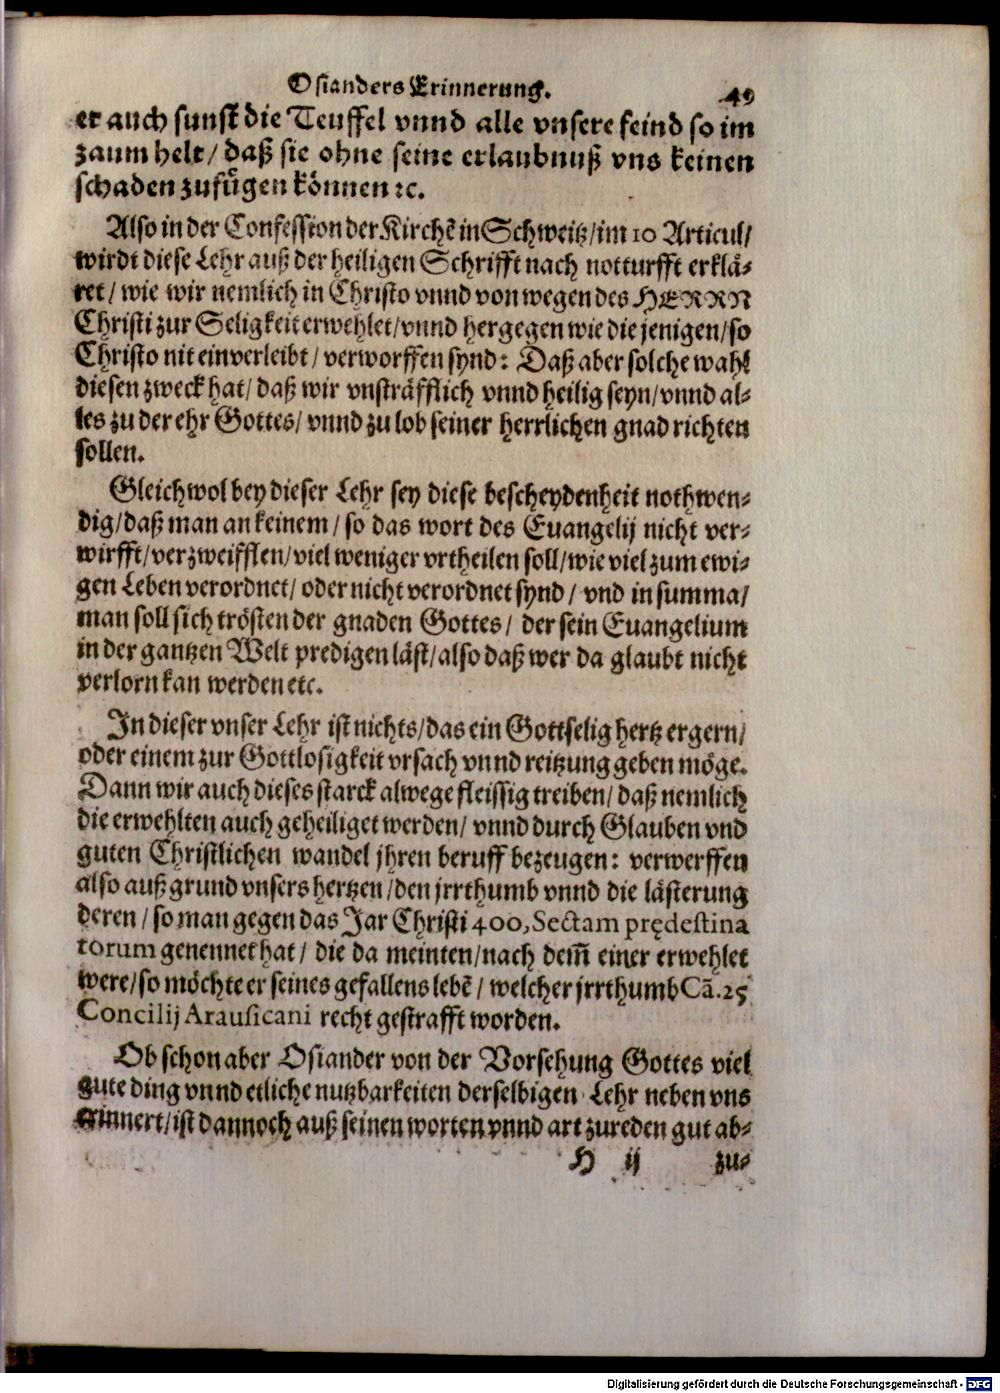 Osianders Erinnerung. 49
er auch sunst die Teuffel vnnd alle vnsere feind so im
zaum helt/ daß sie ohne seine erlaubnuß vns keinen
schaden zufuͤgen koͤnnen ꝛc.
Also in der Confession der Kirchē in Schweitz/ im 10 Articul/
wirdt diese Lehr auß der heiligen Schrifft nach notturfft erklaͤ⸗
ret/ wie wir nemlich in Christo vnnd von wegen des HERRN
Christi zur Seligkeit erwehlet/ vnnd hergegen wie die jenigen/ so
Christo nit einverleibt/ verworffen synd: Daß aber solche wahl
diesen zweck hat/ daß wir vnstraͤfflich vnnd heilig seyn/ vnnd al⸗
les zu der ehr Gottes/ vnnd zu lob seiner herrlichen gnad richten
sollen.
Gleichwol bey dieser Lehr sey diese bescheydenheit nothwen⸗
dig/ daß man an keinem/ so das wort des Euangelij nicht ver⸗
wirfft/ verzweifflen/ viel weniger vrtheilen soll/ wie viel zum ewi⸗
gen Leben verordnet/ oder nicht verordnet synd/ vnd in summa/
man soll sich troͤsten der gnaden Gottes/ der sein Euangelium
in der gantzen Welt predigen laͤst/ also daß wer da glaubt nicht
verlorn kan werden etc.
In dieser vnser Lehr ist nichts/ das ein Gottselig hertz ergern/
oder einem zur Gottlosigkeit vrsach vnnd reitzung geben moͤge.
Dann wir auch dieses starck alwege fleissig treiben/ daß nemlich
die erwehlten auch geheiliget werden/ vnnd durch Glauben vnd
guten Christlichen wandel jhren beruff bezeugen: verwerffen
also auß grund vnsers hertzen/ den jrrthumb vnnd die laͤsterung
deren/ so man gegen das Jar Christi 400, Sectam prędestina
torum genennet hat/ die da meinten/ nach dem̄ einer erwehlet
were/ so moͤchte er seines gefallens lebē/ welcher jrrthumb Cā. 25
Concilij Arausicani recht gestrafft worden.
Ob schon aber Osiander von der Vorsehung Gottes viel
gute ding vnnd etliche nutzbarkeiten derselbigen Lehr neben vns
erinnert/ ist dannoch auß seinen worten vnnd art zureden gut ab⸗
H ij zu⸗
Digitalisierung gefördert durch die Deutsche Forschungsgemeinschaft - DFG